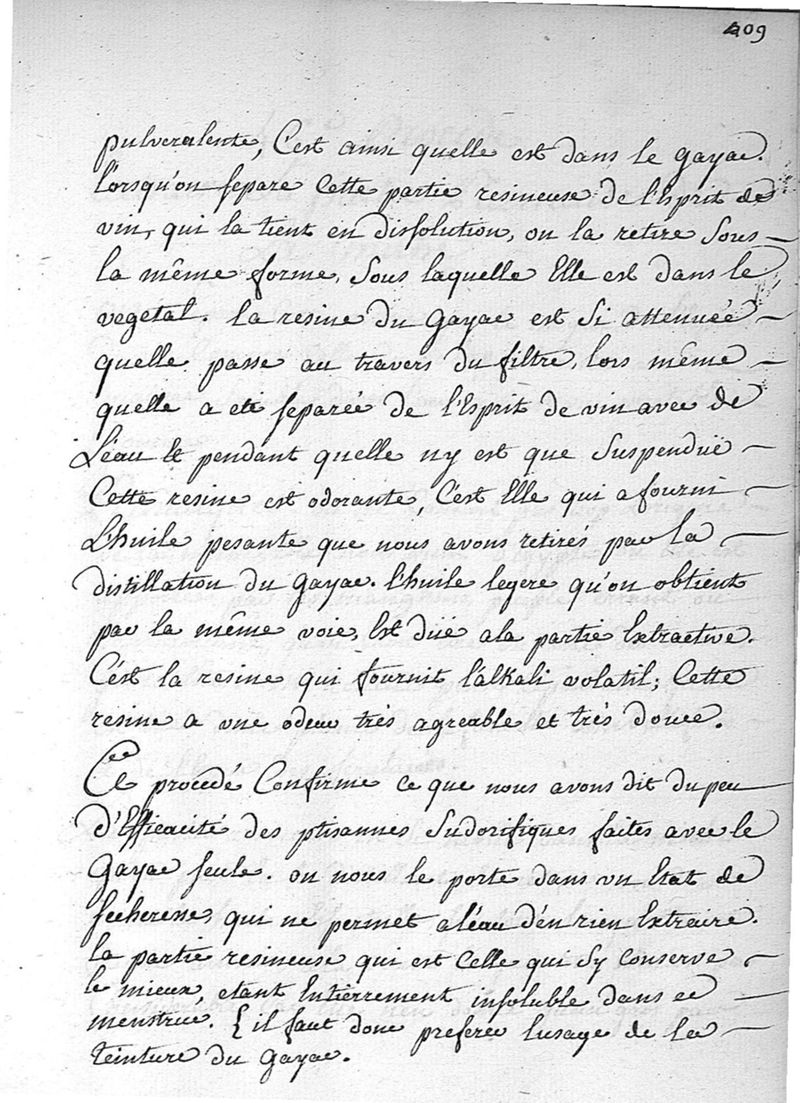 409
pulverulente, C'est ainsi quelle est dans le gayac.
lorsqu'on separe Cette partie resineuse de l'Esprit de
vin, qui la tient en dissolution, on la retire Sous
la même forme, Sous laquelle Elle est dans le
vegetal. la resine du Gayac est Si attenuée
quelle passe au travers du filtre, lors même
quelle a eté separée de l'Esprit de vin avec de
L'eau Et pendant quelle n'y est que Suspenduë
Cette resine est odorante, C'est Elle qui a fourni
L'huile pesante que nous avons retirés par la
distillation du gayac. l'huile legere qu'on obtient
par la même voie, Est düe a la partie Extractive.
C'est la resine qui fournit l'alkali volatil; Cette
resine a vne odeur très agreable et très douce.
Ce procedé Confirme ce que nous avons dit du peu
d'Efficacité des ptisannes Sudorifiques faites avec le
Gayac seule. on nous le porte dans vn Etat de
secheresse, qui ne permet a l'éau d'én rien Extraire.
la partie resineuse qui est Celle qui S'y Conserve
le mieux, etant Entièrrement insoluble dans ce
menstrüe. { il faut donc preferer lusage de la
teinture du gayac.